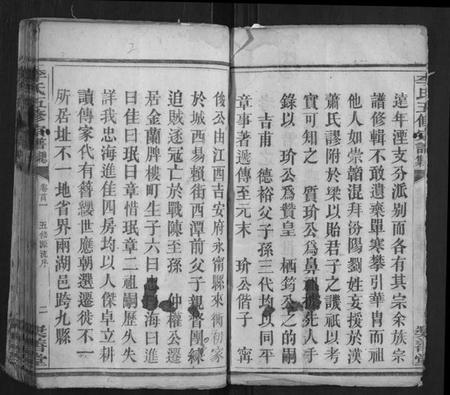 遠年湮支分派别而各有其宗余族宗
譜修輯不敢遺棄單寒攀引華冑而祖
他人如崇韜混拜汾陽劉姓妄援於漢
蕭氏謬附於梁以貽君子之譏祇以考
實可知之 質玠公爲鼻祖 先人手
錄以 玠公爲贊皇 栖筠公之的嗣
吉甫 德裕父子孫三代均以同平
章事著迨傳至元末 玠公偕子 甯
俊公由江西吉安府永甯縣來衡初家
於城西易賴街西潭前父子親督團練
追賊逐冦亡於戰陳至孫 仲權公遷
居金蘭牌樓町生子六曰 海曰進
曰佳曰珉曰章惜珉章二祖嗣歷失失
詳我忠海進佳四房均以人傑卓立耕
讀傳家代有簪纓世應朝選遷徙不一
所居址不一地省界兩湖邑跨九縣
李氏五修族譜
卷首一
五修源流序
二
李氏五修